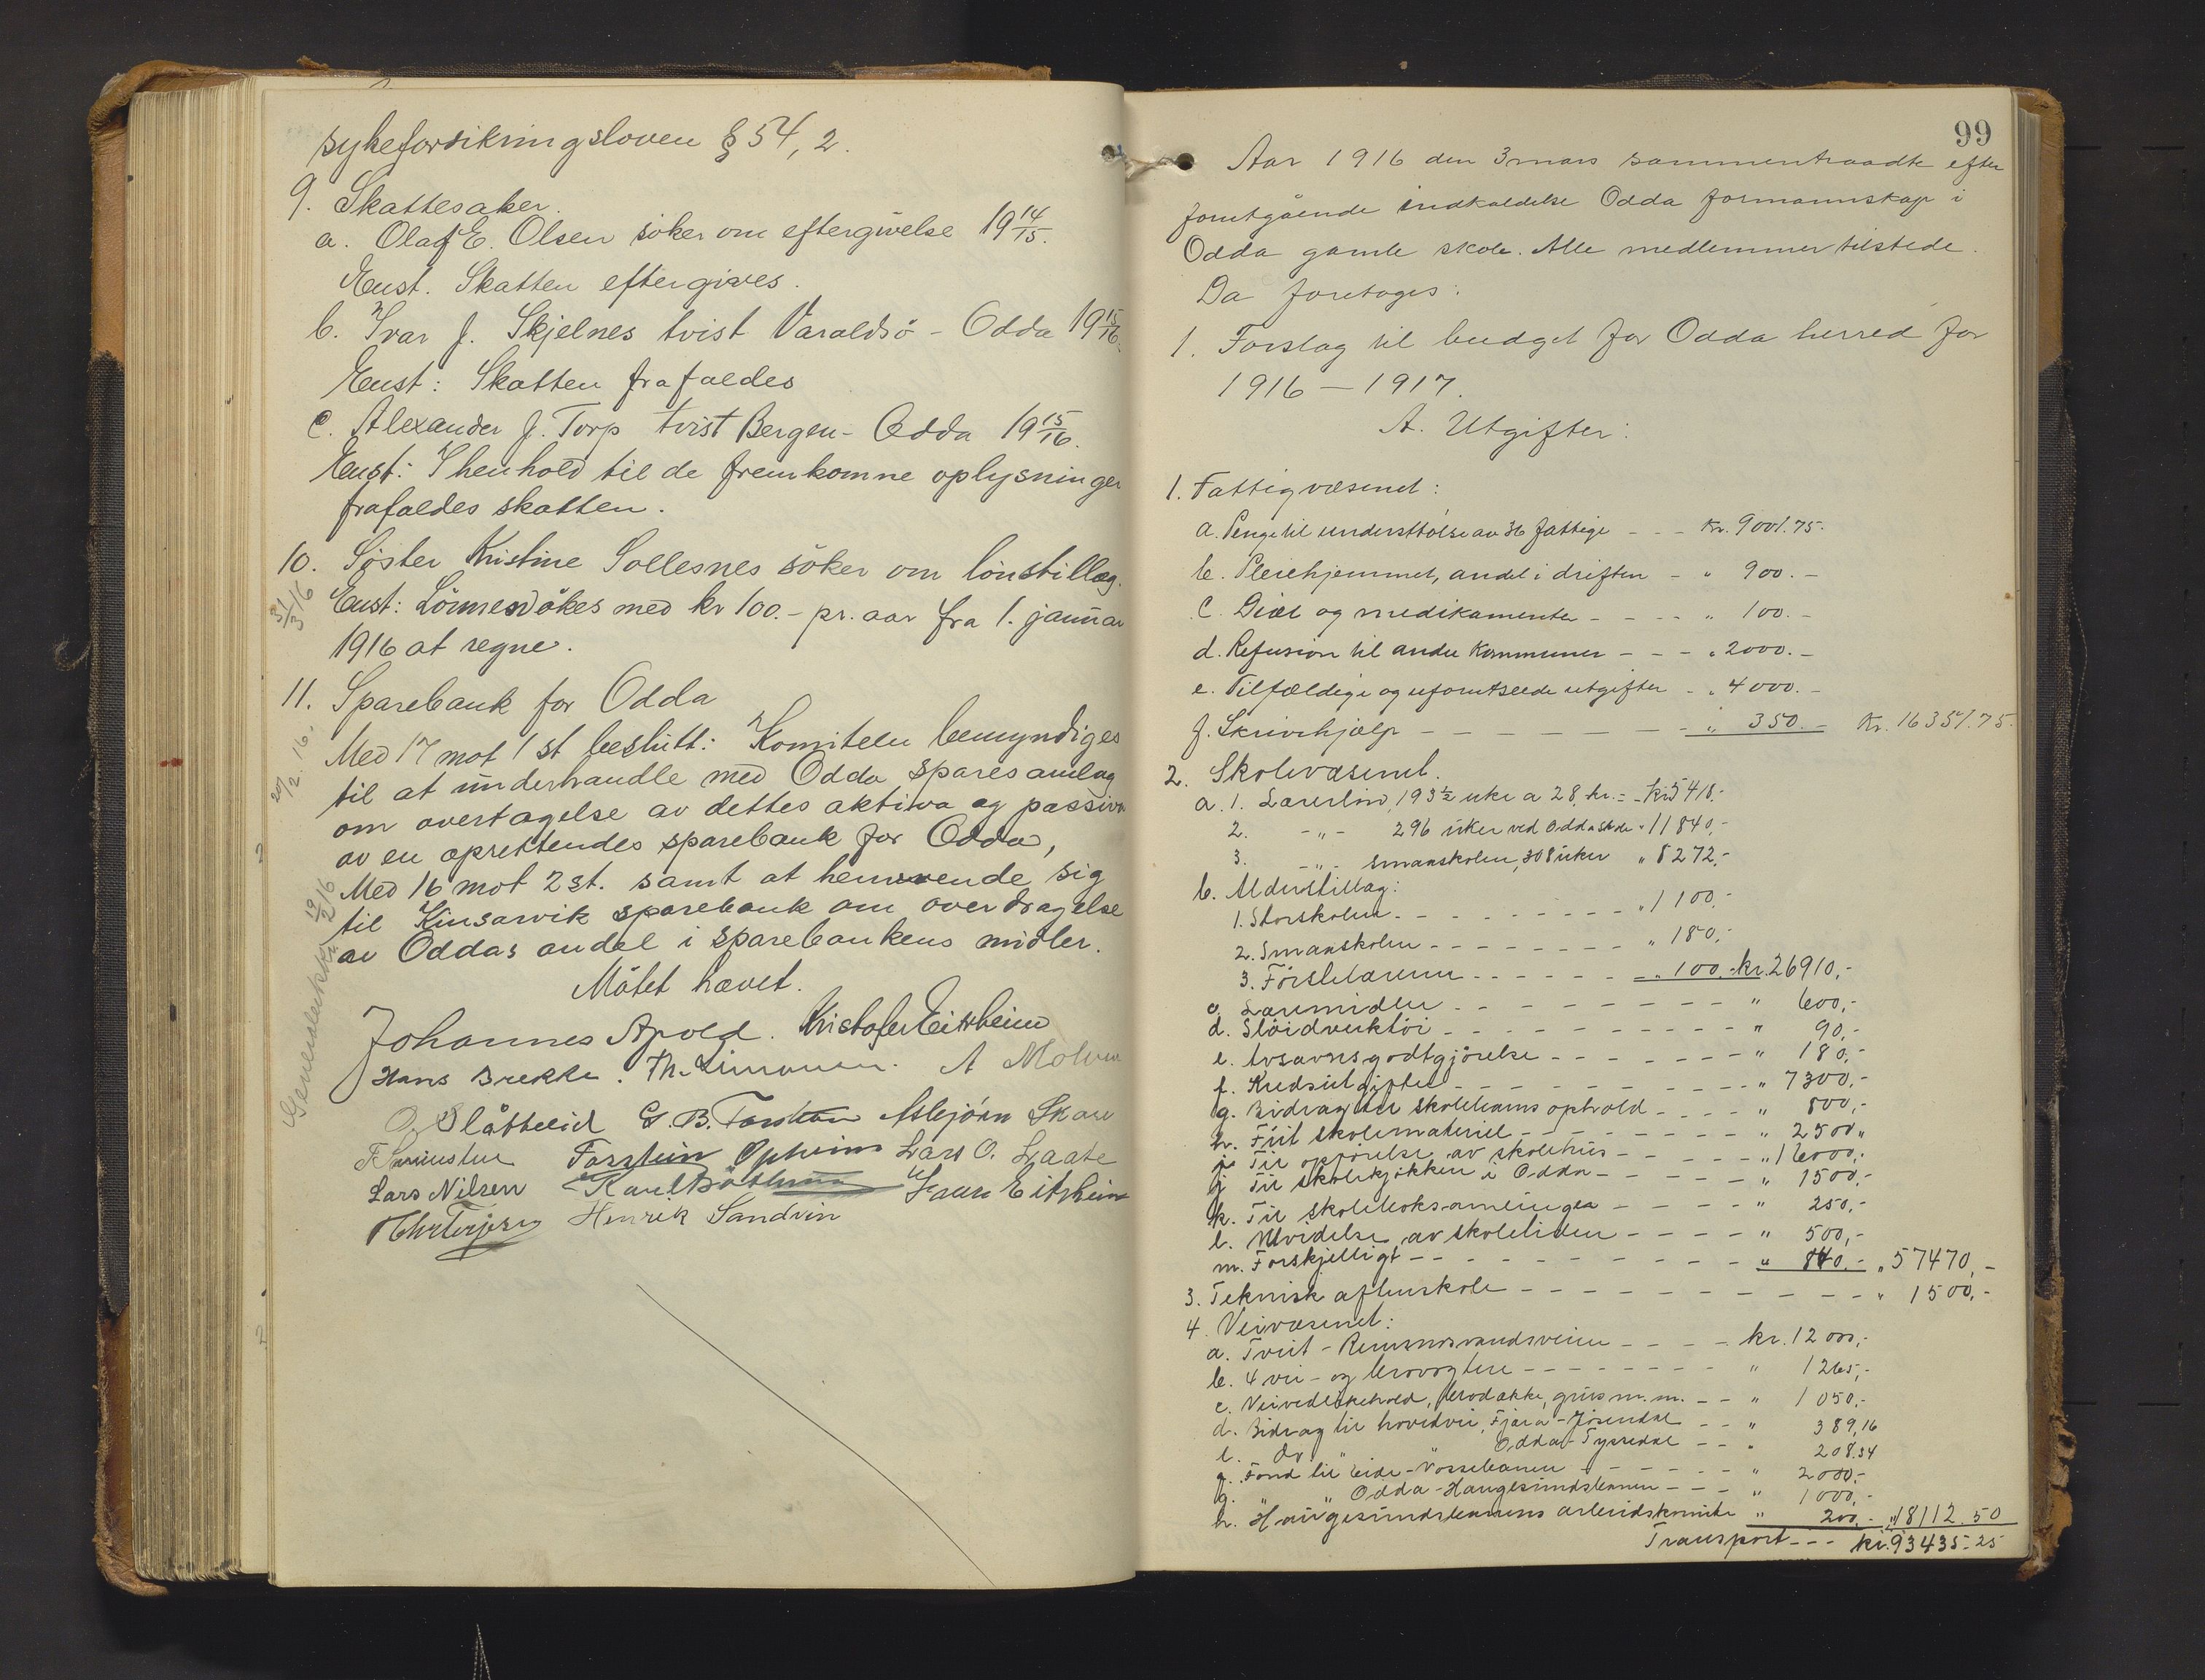 sykeforsikringsloven § 54, 2.
9. Skattesaker.
a. Olaf E. Olsen söker om eftergivelse 19 14/15.
Enst. Skatten eftergives.
b. Ivar J. Skjelnes tvist Varaldsö - Odda 19 15/16.
Enst: Skatten frafaldes
c. Alexander J. Torp tvist Bergen - Odda 19 15/16.
Enst: I henhold til de fremkomne oplysninger
frafaldes skatten.
10. Søster Kristine Sollesnes söker om lönstillæg.
31/3 16
Enst: Lönnen økes med kr 100.- pr. aar fra 1. januar
1916 at regne.
11. Sparebank for Odda
Med 17 mot 1 st beslutt: Komiteen bemyndiges
29/2. 16.
til at underhandle med Odda sparesamlag
om overtagelse av dettes aktiva og passiva
av en oprettendes sparebank for Odda,
Med 16 mot 2 st. samt at henvende sig
til Kinsarvik sparebank om overdragelse
av Oddas andel i sparebankens midler.
19/2 16
Mötet hævet.
Johannes Apold. Kristofer Eitrheim
Hans Brekke. Th. Simonsen. A Molven
O. Slåtteeid G. B. Forstrøm Asbjörn Skare
Torstein Opheim Lars O. Laate
Lars Nilsen Karl Bøthun Laur Eitrheim
Chr Terjesen Henrik Sandvin
99
Aar 1916 den 3 mars sammentraadte efter
forutgående indkaldelse Odda formannskap i
Odda gamle skole. Alle medlemmer tilstede.
Da foretoges:
1. Forslag til budget for Odda herred for
1916 - 1917.
A. Utgifter:
1. Fattigvæsenet:
a. Penge til understtölse av 36 fattige - - - Kr. 9001.75.
b. Pleiehjemmet, andel i driften - " 900.-
c. Diæt og medikamenter - - - - " 100.-
d. Refusion til andre kommuner - - - " 2000.-
e. Tilfældige og uforutseede utgifter - " 4000.-
f. Skrivehjælp - - - - - - - " 350.- Kr. 16351.75.
2. Skolevæsenet.
a. 1. Lærerlön, 193 1/2 uke a 28 kr. = - kr 5418.-
2. - " - 296 uker ved Odda skole " 11840,-
3. - " - smaaskolen, 308 uker " 8272,-
b. Alderstillæg:
1. Storskolen - - - - - - - - " 1100,-
2. Smaaskolen - - - - - - - " 180,-
3. Förstelæreren - - - - - - " 100,- kr. 26910,-
c. Læremidler - - - - - - - - - " 600,-
d. Slöidverktöi - - - - - - - - - " 90,-
e. Avsavnsgodtgjörelse - - - - - - - " 180,-
f. Kredsutgifter - - - - - - - - - " 7300,-
g. Bidrag til skolebarns ophold - - - - " 800,-
h. Frit skolemateriel - - - - - - - - " 2500 "
i. Til opförelse av skolehus - - - - - " 16000,-
j. Til skolekjökken i Odda - - - - - - " 1500,-
k. Til skoleboksamlinger - - - - - " 250,-
l. Utvidelse av skoletiden - - - - - " 500,-
m. Forskjelligt - - - - - - - - - - " 840.- " 57470,-
3. Teknisk aftenskole - - - - - - - - - - " 1500,-
4. Veivæsenet:
a. Tveit - Reinsnosvandsveien - - - - kr. 12000,-
b. 4 vei- og brovogtere - - - - - - - - " 1265,-
c. Veivedlikehold, brodække, grus m. m. - - " 1050,-
d. Bidrag til hovedvei, Fjæra - Jösendal - - " 389,16
e. do " " Odda - Tyssedal - - " 208.34
f. Fond til Eide - Vossebanen - - - - - - " 2000,-
g. " " Odda - Haugesundsbanen - - - " 1000,-
h. Haugesundsbanens arbeidskomite " 200,- " 18112.50
Transport - - - kr. 93435.25